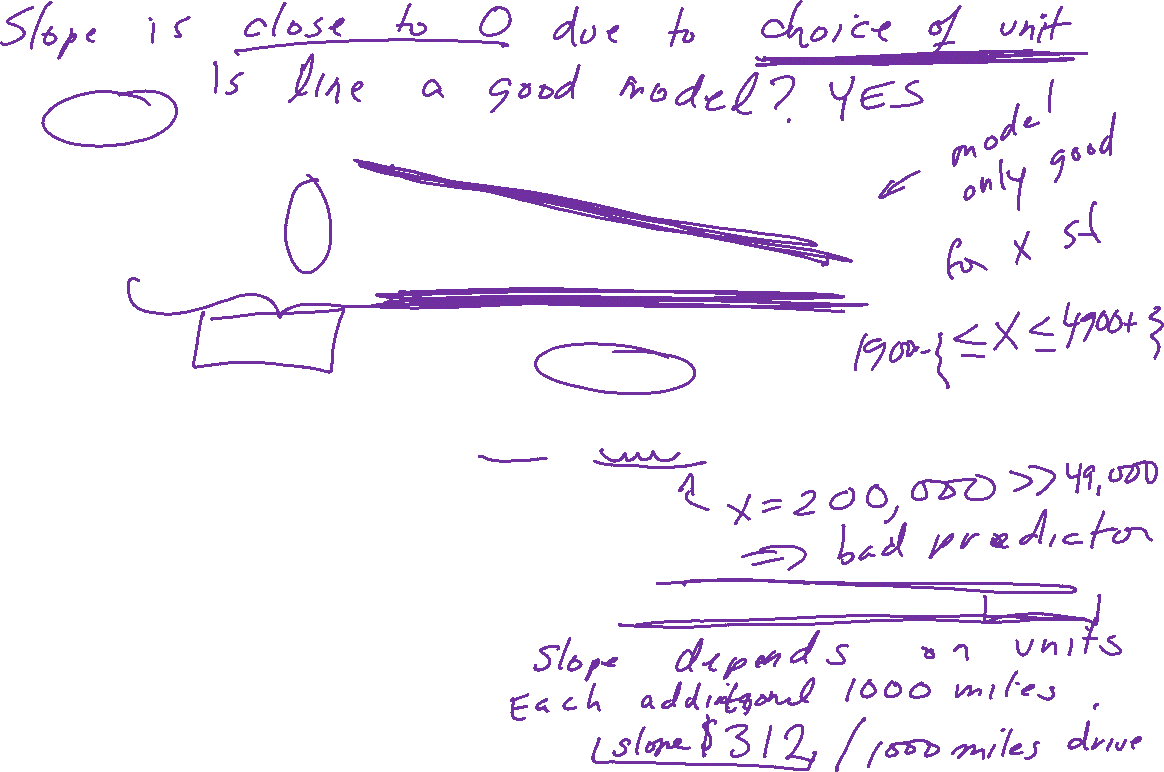 Slope is close to 0 due to choice of unit
Is line a good model? YES
model
only good
for x st
1900-{ ≤ X ≤ 4900+ }
x = 200,000 >> 49,000
⇒ bad predictor
Slope depends on units
Each additional 1000 miles
slope $312 / 1000 miles drive